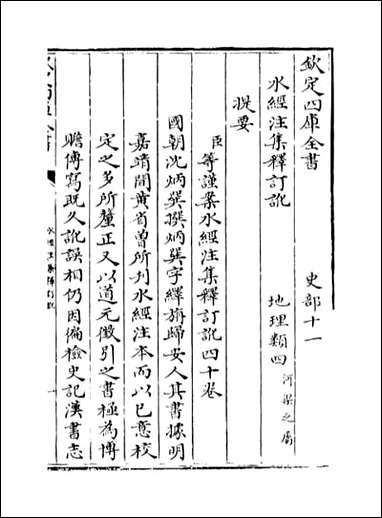 欽定四庫全書　史部十一
水經注集釋訂訛　地理類四河渠之屬
提要
臣等謹案水經注集釋訂訛四十卷
國朝沈炳巽撰炳巽字繹旃歸安人其書據明
嘉靖間黃省曾所刋水經注本而以已意校
定之多所釐正又以道元徵引之書極為博
贍傳寫既久訛誤相仍因徧檢史記漢書志
水經注集釋訂訛